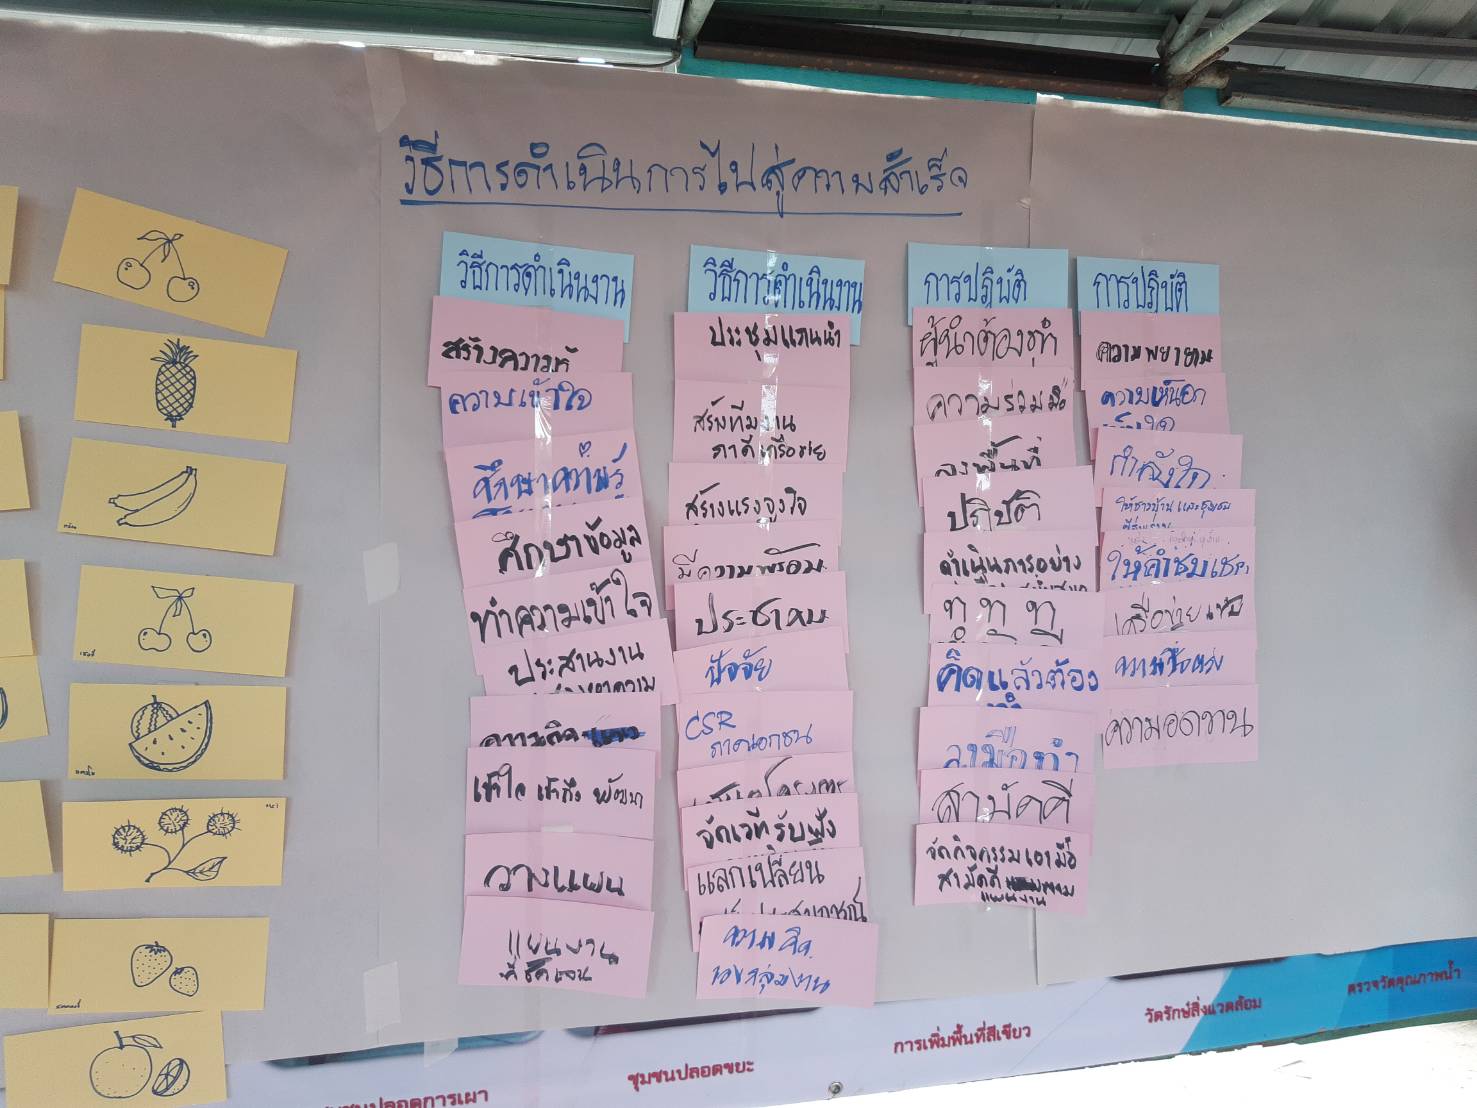 วิธีการดำเนินการไปสู่ความสำเร็จ
วิธีการดำเนินงาน
สร้างความรู้
ความเข้าใจ
ศึกษาความรู้
ศึกษาข้อมูล
ทำความเข้าใจ
ประสานงาน
ความคิด
เข้าใจ เข้าถึง พัฒนา
วางแผน
แผนงาน
ที่ชัดเจน
วิธีการดำเนินงาน
ประชุมแกนนำ
สร้างทีมงาน
ภาคีเครือข่าย
สร้างแรงจูงใจ
มีความพร้อม
ประชาคม
ปัจจัย
CSR
ภาคเอกชน
จัดเวทีรับฟัง
แลกเปลี่ยน
ประสบการณ์
ความคิด
ของกลุ่มงาน
การปฏิบัติ
ผู้นำต้องทำ
ความร่วมมือ
ลงพื้นที่
ปฏิบัติ
ดำเนินการอย่าง
ทำ ทำ ทำ
คิดแล้วต้อง
ทำ
ลงมือทำ
สามัคคี
จัดกิจกรรมเอามื้อ
สามัคคี ตาม
แผนงาน
การปฏิบัติ
ความพยายาม
ความเห็นอก
เห็นใจ
กำลังใจ
ให้ชาวบ้านและชุมชน
ให้คำชมเชย
เครือข่าย
ความอดทน
ชุมชนปลอดการเผา
ชุมชนปลอดขยะ
การเพิ่มพื้นที่สีเขียว
วัดรักษ์สิ่งแวดล้อม
ตรวจวัดคุณภาพน้ำ